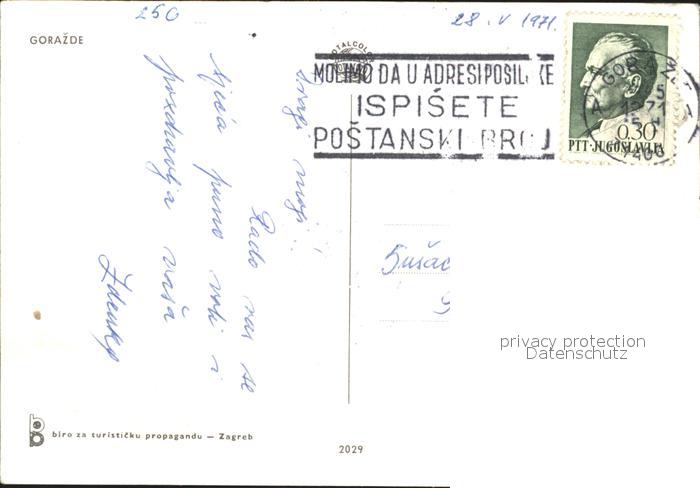 250
28. V 1971.
GORAŽDE
MOLIMO DA U ADRESI POŠILJKE
ISPIŠETE
POŠTANSKI BROJ
0.30
PTT·JUGOSLAVIJA
Dragi moji!
Rado vas se
sjeća puno voli i
pozdravlja vaša
Zdenka
Sušac
privacy protection
Datenschutz
biro za turističku propagandu — Zagreb
2029